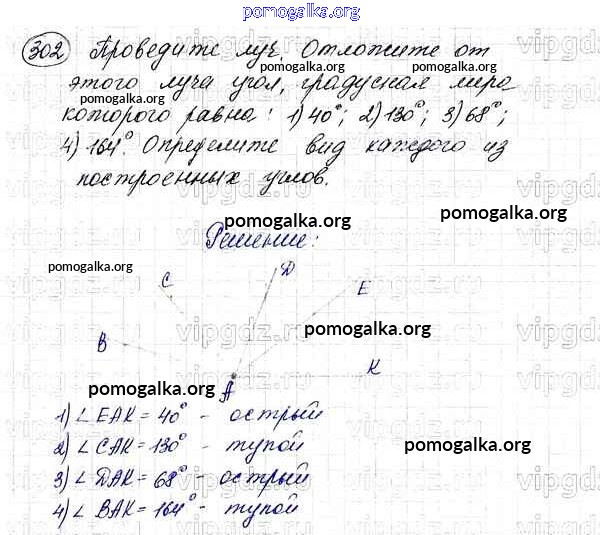 pomogalka.org
302 Проведите луч. Отложите от
этого луча угол, градусная мера
pomogalka.org pomogalka.org
которого равна: 1) 40°; 2) 130°; 3) 68°;
pomogalka.org
4) 164°. Определите вид каждого из
построенных углов.
pomogalka.org pomogalka.org
Решение:
pomogalka.org
C D E
pomogalka.org
B K
A
pomogalka.org
1) ∠EAK = 40° - острый
2) ∠CAK = 130° - тупой
pomogalka.org
3) ∠DAK = 68° - острый
4) ∠BAK = 164° - тупой
vipgdz.ru